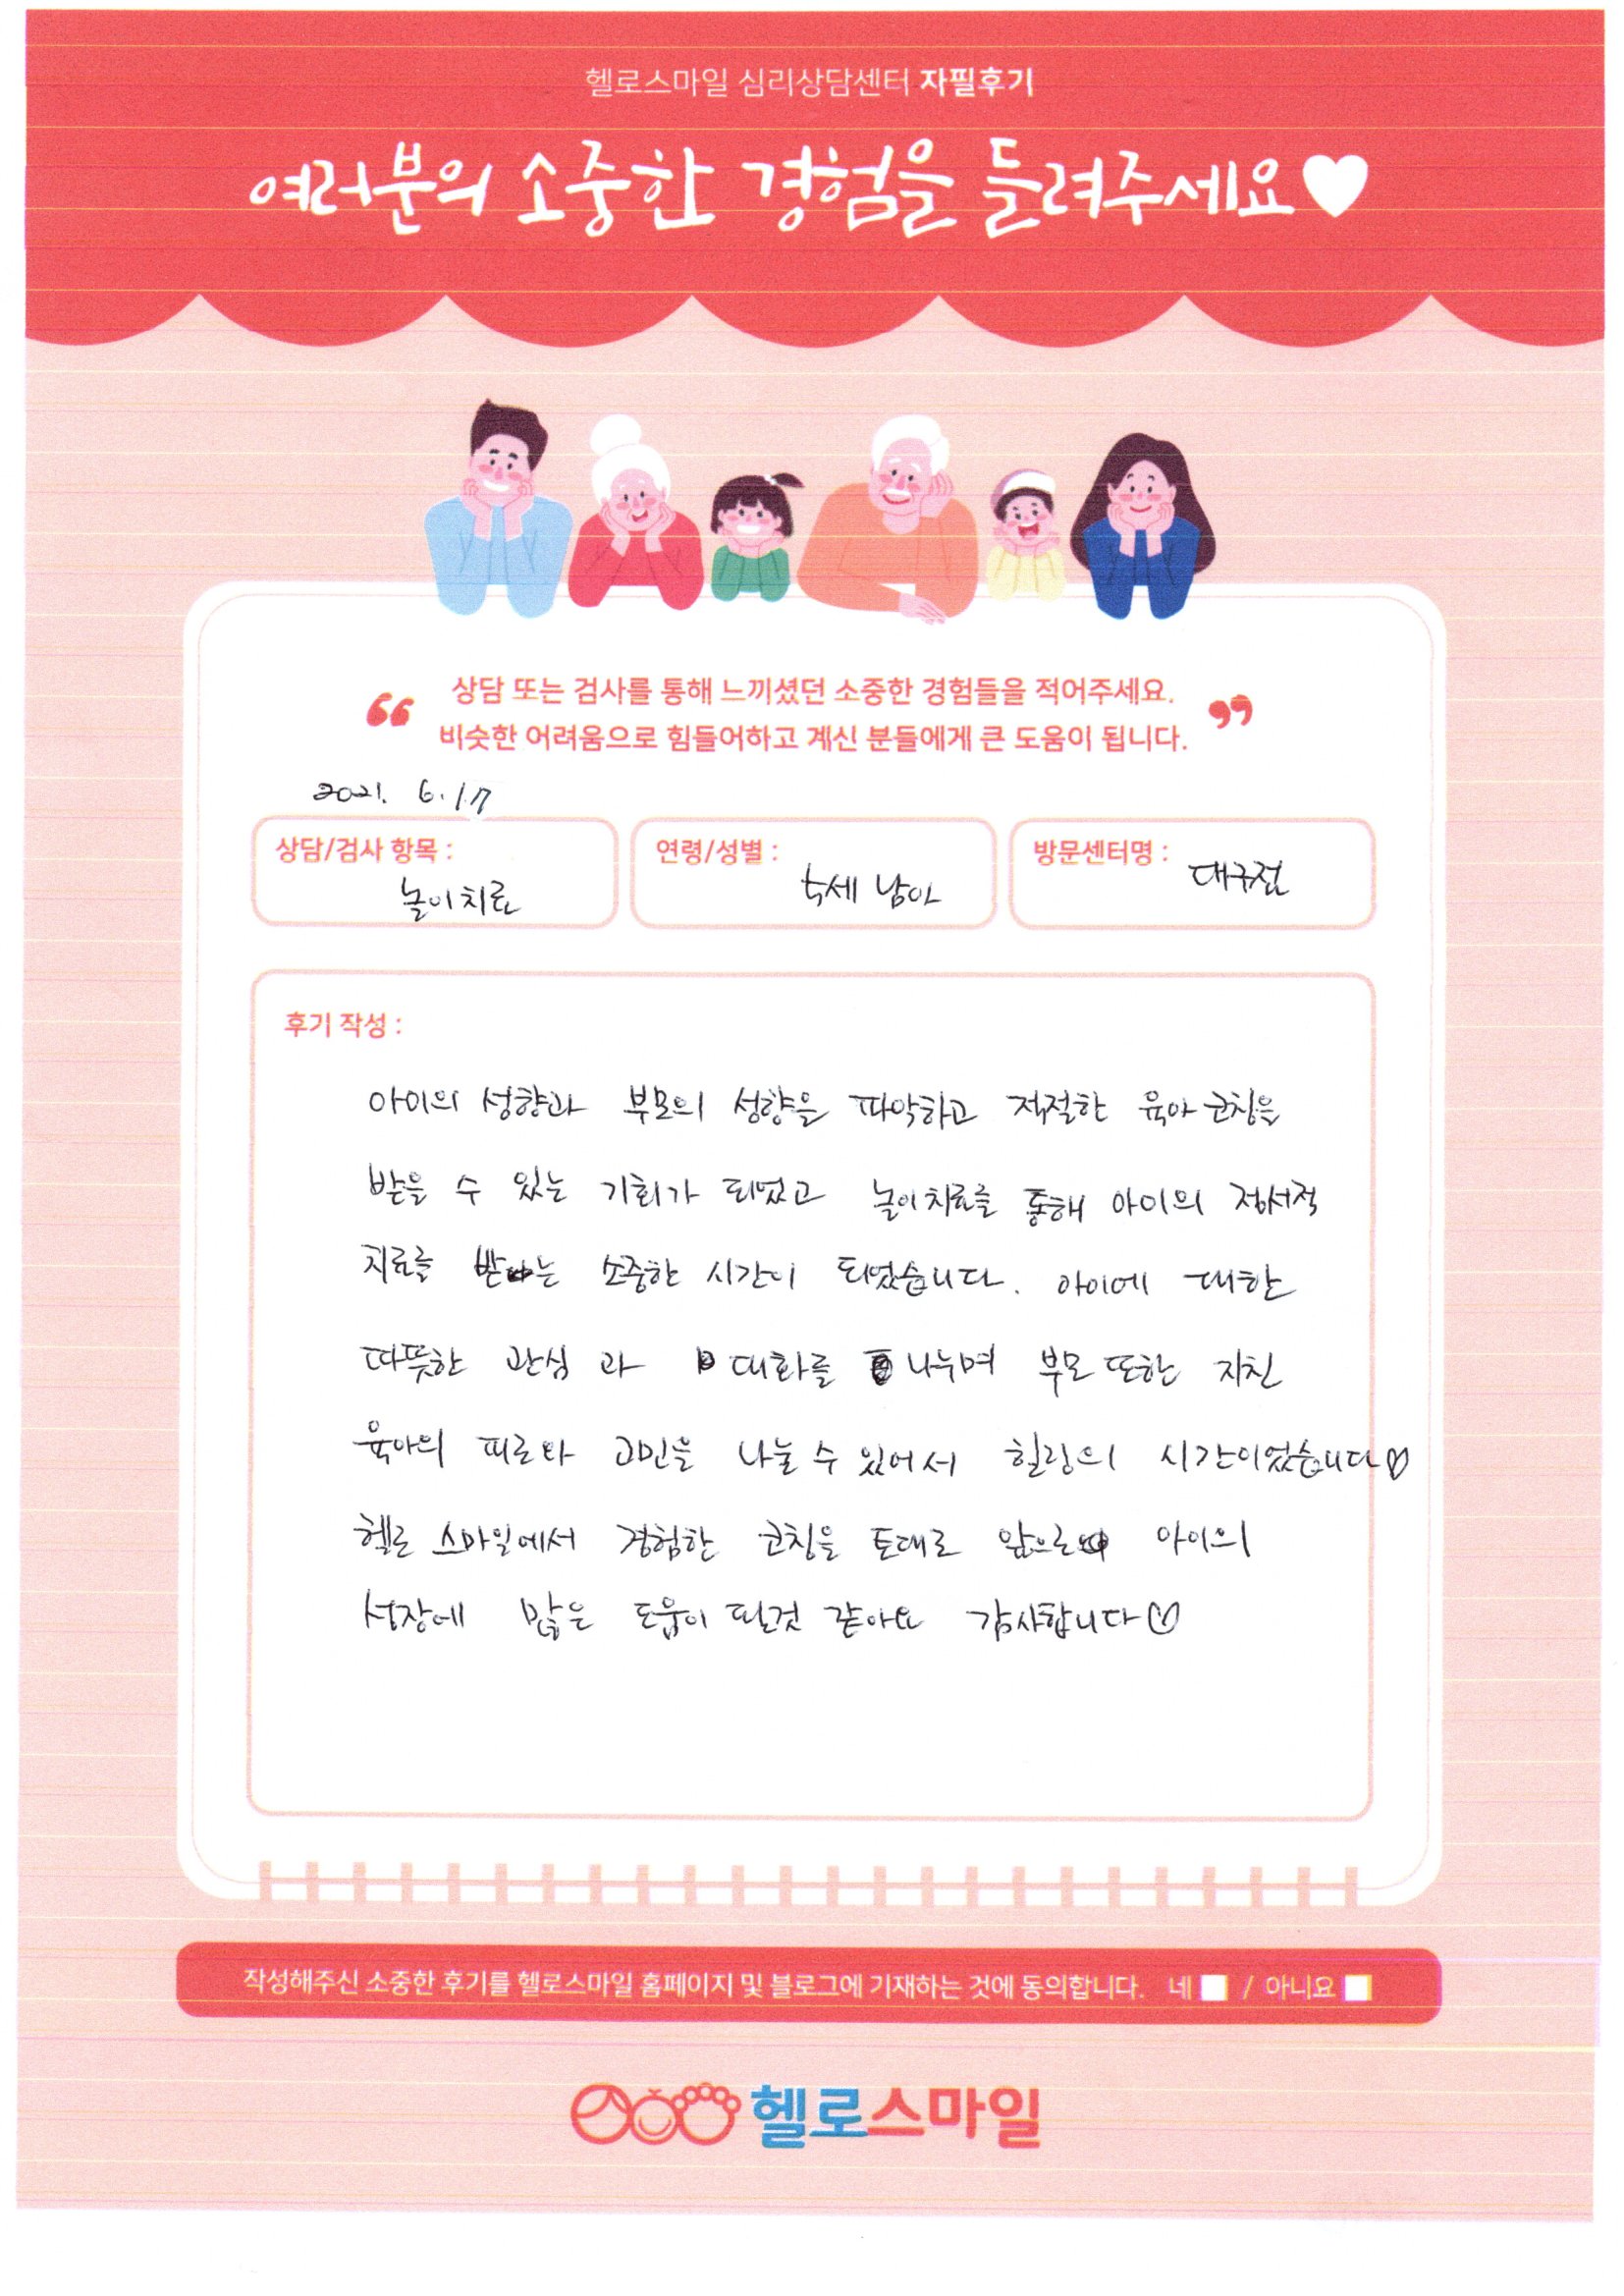 헬로스마일 심리상담센터 자필후기
여러분의 소중한 경험을 들려주세요♥
“ 상담 또는 검사를 통해 느끼셨던 소중한 경험들을 적어주세요.
비슷한 어려움으로 힘들어하고 계신 분들에게 큰 도움이 됩니다. ”
2021. 6.17
상담/검사 항목 : 놀이치료
연령/성별 : 5세 남아
방문센터명 : 대구점
후기 작성 :
아이의 성향과 부모의 성향을 파악하고 적절한 육아 코칭을
받을 수 있는 기회가 되었고 놀이치료를 통해 아이의 정서적
치료를 받는 소중한 시간이 되었습니다. 아이에 대한
따뜻한 관심 과 대화를 나누며 부모 또한 지친
육아의 피로와 고민을 나눌 수 있어서 힐링의 시간이었습니다♡
헬로 스마일에서 경험한 코칭을 토대로 앞으로 아이의
성장에 많은 도움이 될것 같아요 감사합니다♡
작성해주신 소중한 후기를 헬로스마일 홈페이지 및 블로그에 기재하는 것에 동의합니다. 네 ■ / 아니요 ■
헬로스마일